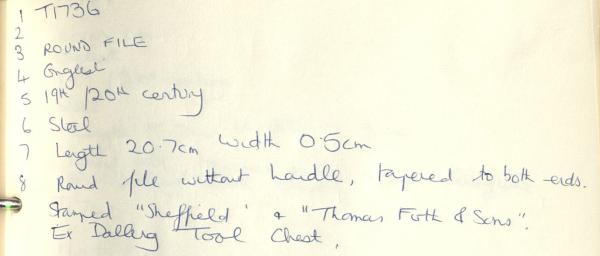 1 T1736
2
3 ROUND FILE
4 English
5 19th/20th century
6 Steel
7 Length 20.7cm width 0.5cm
8 Round file without handle, tapered to both ends.
Stamped "Sheffield" & "Thomas Firth & Sons".
Ex Dalling Tool Chest.